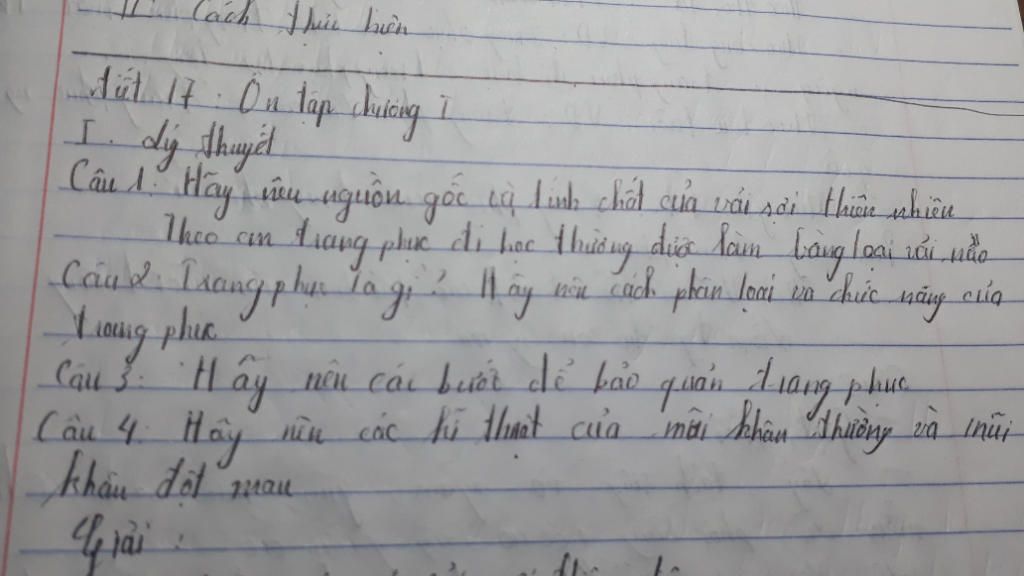 II. Cách thực hiện
Tiết 17: Ôn tập chương I
I. Lý thuyết
Câu 1. Hãy nêu nguồn gốc và tính chất của vải sợi thiên nhiên
Theo em trang phục đi học thường được làm bằng loại vải nào
Câu 2: Trang phục là gì? Hãy nêu cách phân loại và chức năng của
trang phục
Câu 3: Hãy nêu các bước để bảo quản trang phục
Câu 4. Hãy nêu các kĩ thuật của mũi khâu thường và mũi
khâu đột mau
Giải: